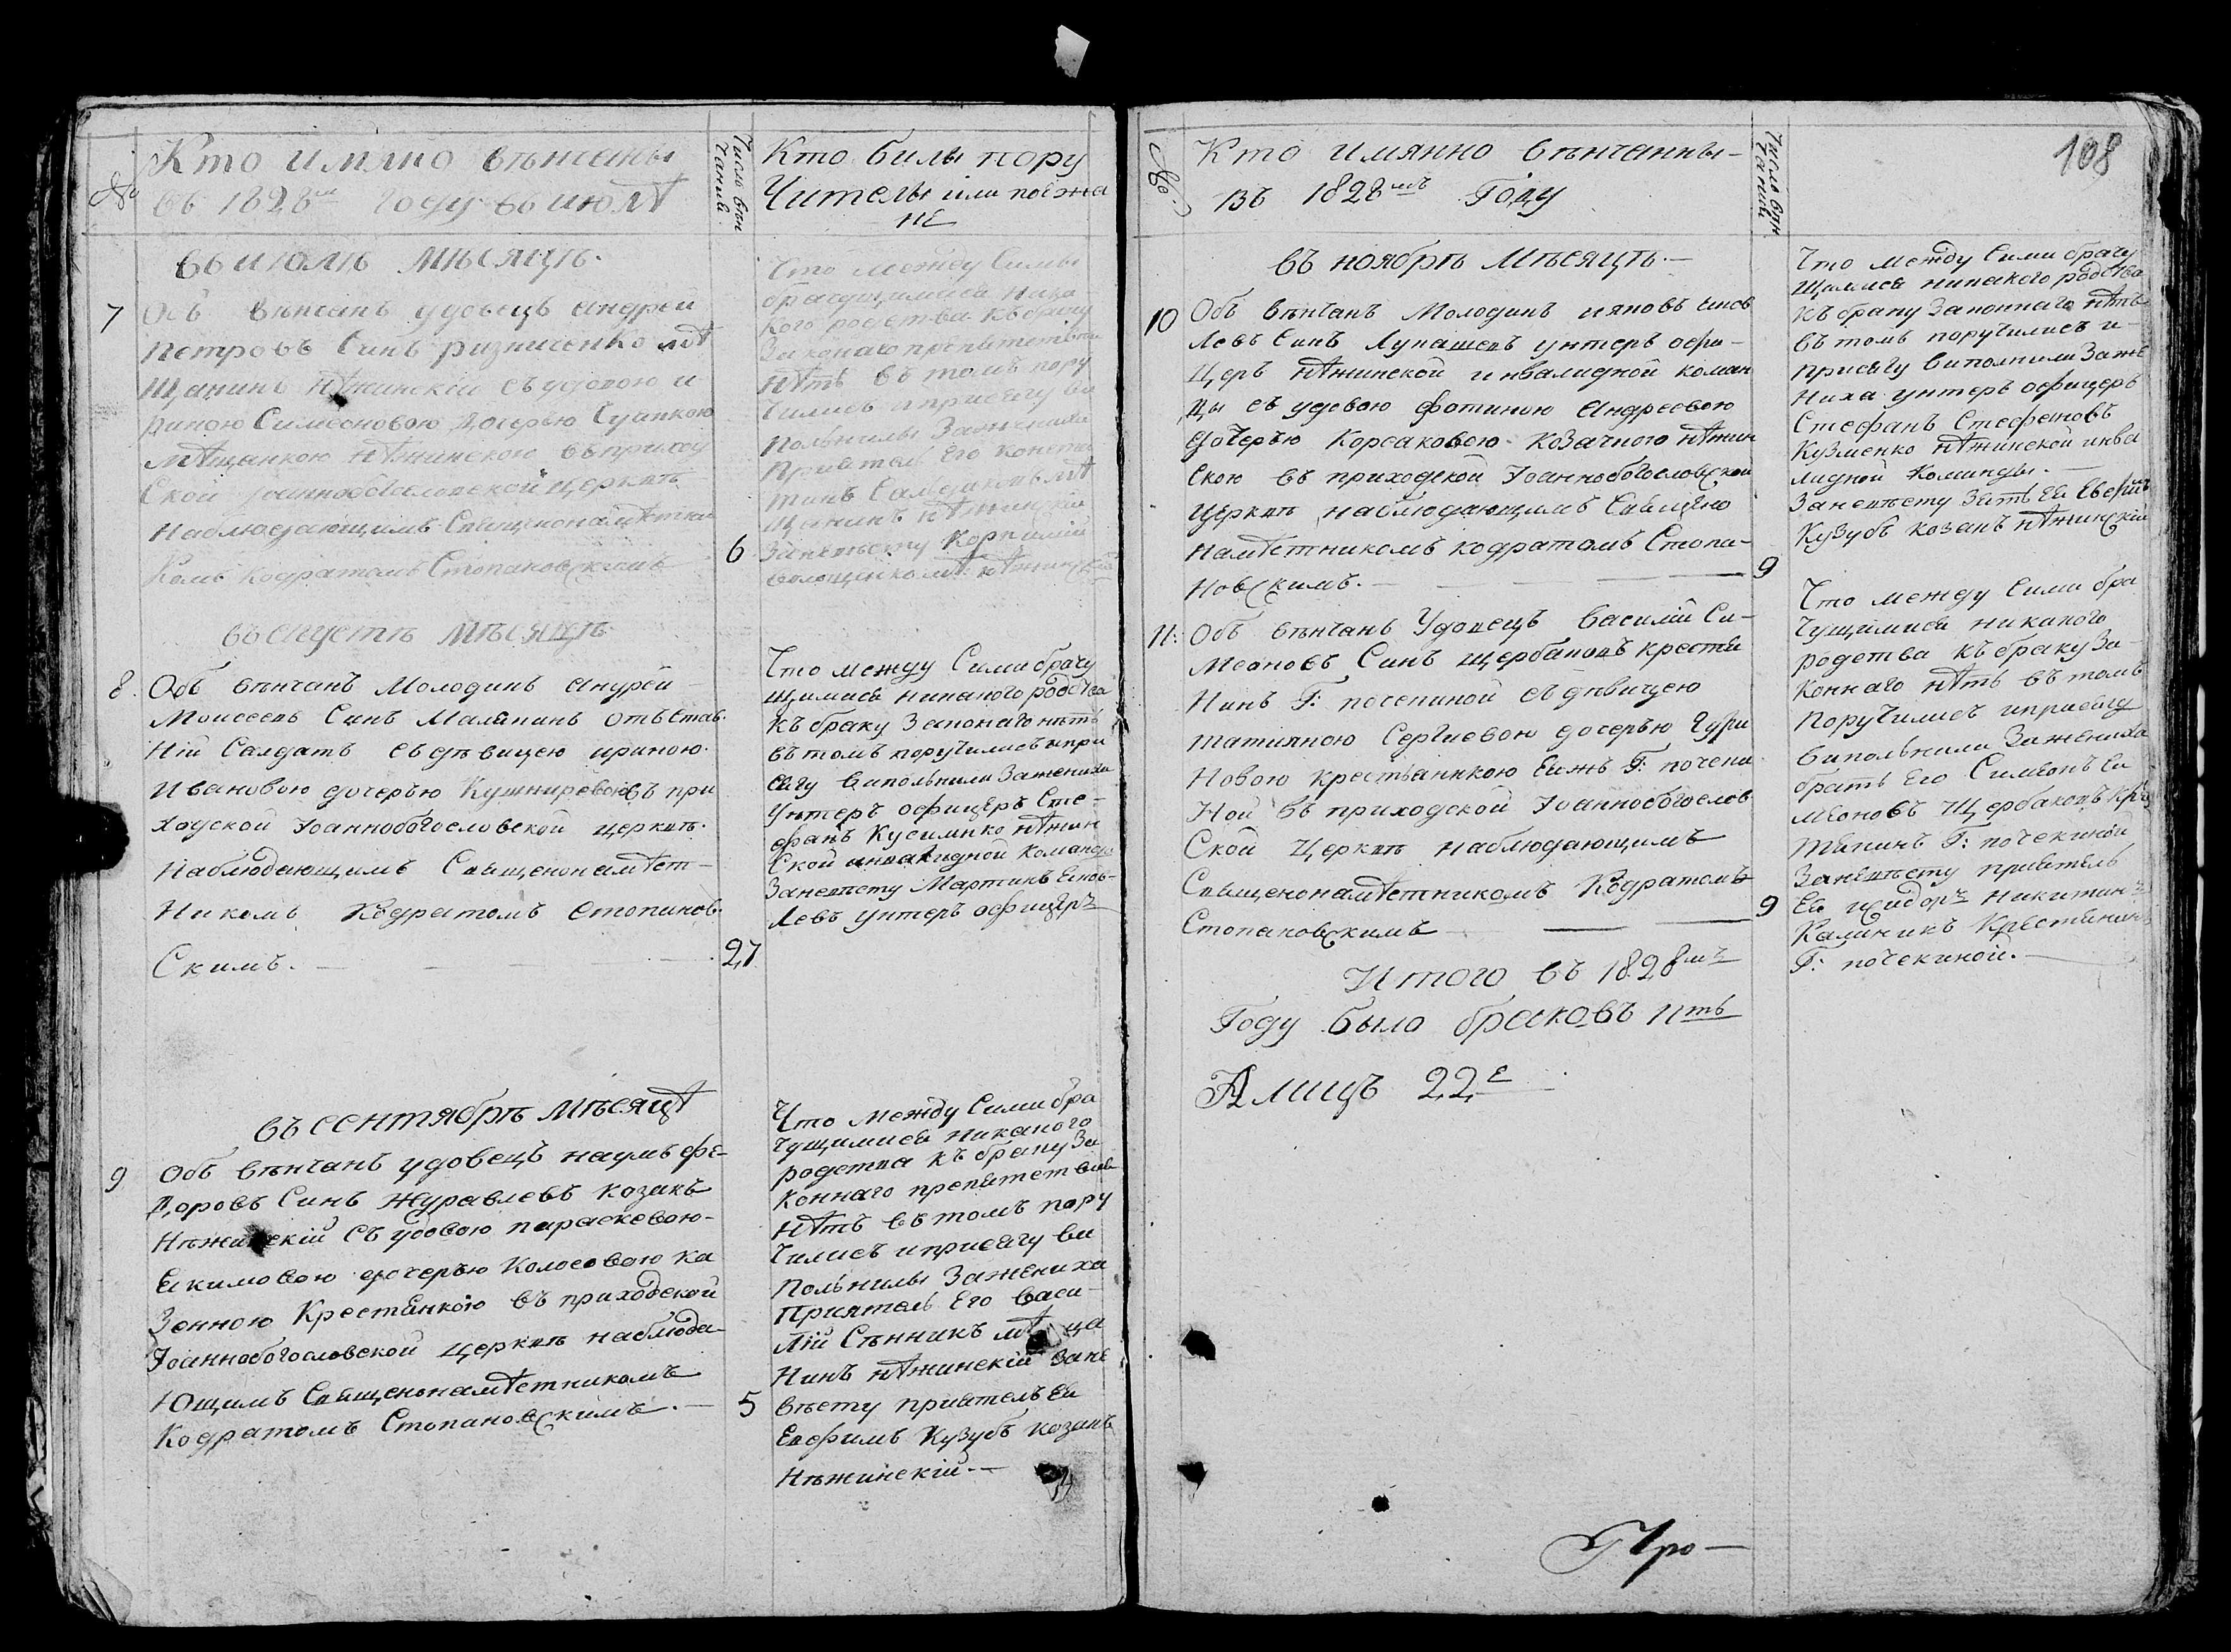 №
Кто имяно венчаны
въ 1828мъ году во июлѣ
Число вен
чание.
Кто билы пору
Чителы или поезжа
не
во июлѣ мѣсяцѣ.
7
Объ венчанъ удовецъ Андрей
Петровъ Синъ ризниченко мѣ
щанинъ нѣжинскій съ удовою и
риною Симеоновою дочерью
мѣщанкою нѣжинскою въ приход
Ской Іоаннобогословской церквѣ
Наблюдающимъ Священонамѣстни
комъ Кодратомъ Стопановскимъ
6
Что между Симы
брачущимися ника
кого родства къ браку
Законаго препятствия
нѣтъ въ томъ пору
чилисъ и присягу ви
полънилы За жениха
Приятель Его конста
тинъ мѣ
щанинъ нѣжинскій
За невѣсту Корнилій
нѣжинскій
въ августѣ мѣсяцѣ
8.
Объ венчанъ Молодикъ Андрей
Моисеевъ Синъ Малякинъ отъ став.
ній Салдатъ съ дѣвицею ириною.
Ивановою дочерью Кушнировою въ при
ходской Іоаннобогословской церквѣ.
Наблюдающимъ Священонамѣст-
Никомъ Кодратомъ Стопанов.
Скимъ.
27
Что между Сими брачу
щимися никакого родства
къ браку Законаго нетъ
въ томъ поручилисъ и при
сягу виполънили За жениха
унтеръ офицеръ Сте-
фанъ Кусименко нѣжин
Ской инвалидной команды
За невѣсту Мартинъ
левъ унтеръ офицеръ
въ сентябрѣ мѣсяцѣ
9
Объ венчанъ удовецъ наумъ фе-
доровъ Синъ Журавлевъ козакъ
Нѣжинскій съ удовою параскевою-
Екимовою дочерью Колосовою ка
Зенною Крестянкою въ приходской
Іоаннобогословской церквѣ наблюда
Ющимъ Священонамѣстникомъ
Кодратомъ Стопановскимъ.
5
Что между Сими бра
чущимися никакого
родства къ браку За
коннаго препятствия
нѣтъ въ томъ пору
чилисъ и присягу ви
полънилы За жениха
Приятель Его васи-
лій Сѣнникъ мѣща
нинъ нѣжинскій За не
вѣсту приятелъ Ея
Евфимъ Кузубъ козакъ
Нѣжинскій.
№.
Кто имянно венчанны-
въ 1828мъ Году
Число вен
чаний
108
въ ноябрѣ мѣсяцѣ.
10
Объ венчанъ Молодикъ
левъ Синъ Лукашевъ унтеръ офи-
церъ нѣжинской инвалидной коман
ды съ удовою фотиною Андреевою
дочерью Корсаковою. козачкою нѣжин
Скою въ приходской Іоаннобогословской
Церквѣ наблюдающимъ Священо
намѣстникомъ кодратомъ Стопа-
новскимъ.
9
Что между Сими брачу
щимися никакого родства
къ браку Законнаго нѣтъ
въ томъ поручилисъ и-
присягу виполнили За же
ниха унтеръ офицеръ
Стефанъ Стефановъ
Кузменко нѣжинской инва
лидной Команды.
За невѣсту Зять Ея Евфимъ
Кузубъ козакъ нѣжинскій
11.
Объ венчанъ Удовецъ василій Си-
меоновъ Синъ щербаковъ крестя
нинъ Г: почекиной съ дѣвицею
татияною Сергиевою дочерью
новою крестьянкою Ея жъ Г: почеки
ной въ приходской Іоаннобогослов
Ской Церквѣ наблюдающимъ
Священонамѣстникомъ Кодратомъ
Стопановскимъ
9
Что между Сими бра
чущимися никакого
родства къ браку За-
коннаго нѣтъ въ томъ
поручилисъ и присягу
виполънили За жениха
братъ Его Симеонъ Си
меоновъ Щербаковъ кре
тянинъ Г: почекиной
За невѣсту приятель
Ея исидоръ Никитинъ
Калиникъ Крестянинъ
Г: почекиной.
Итого въ 1828мъ
Году было браковъ 11ть
А лицъ 22е
Про-